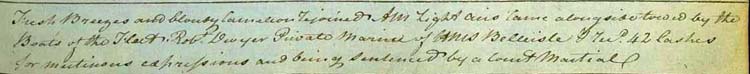 Fresh Breezes and Cloudy Camelion rejoined AM Light airs Came alongside towed by the
Boats of the Fleet Robt. Dwyer Private Marine of HMS Belleisle 42 lashes
for mutinous expressions and being sentenced by a Court Martial